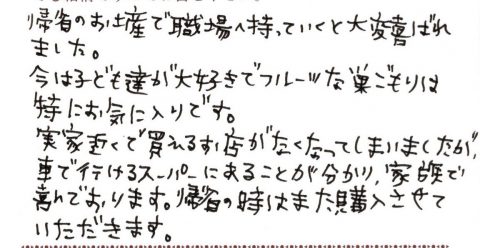 帰省のお土産で職場へ持っていくと大変喜ばれ
ました。
今は子ども達が大好きでフルーツな巣ごもりは
特にお気に入りです。
実家近くで買えるお店がなくなってしまいましたが、
車で行けるスーパーにあることが分かり、家族で
喜んでおります。帰省の時はまた購入させて
いただきます。